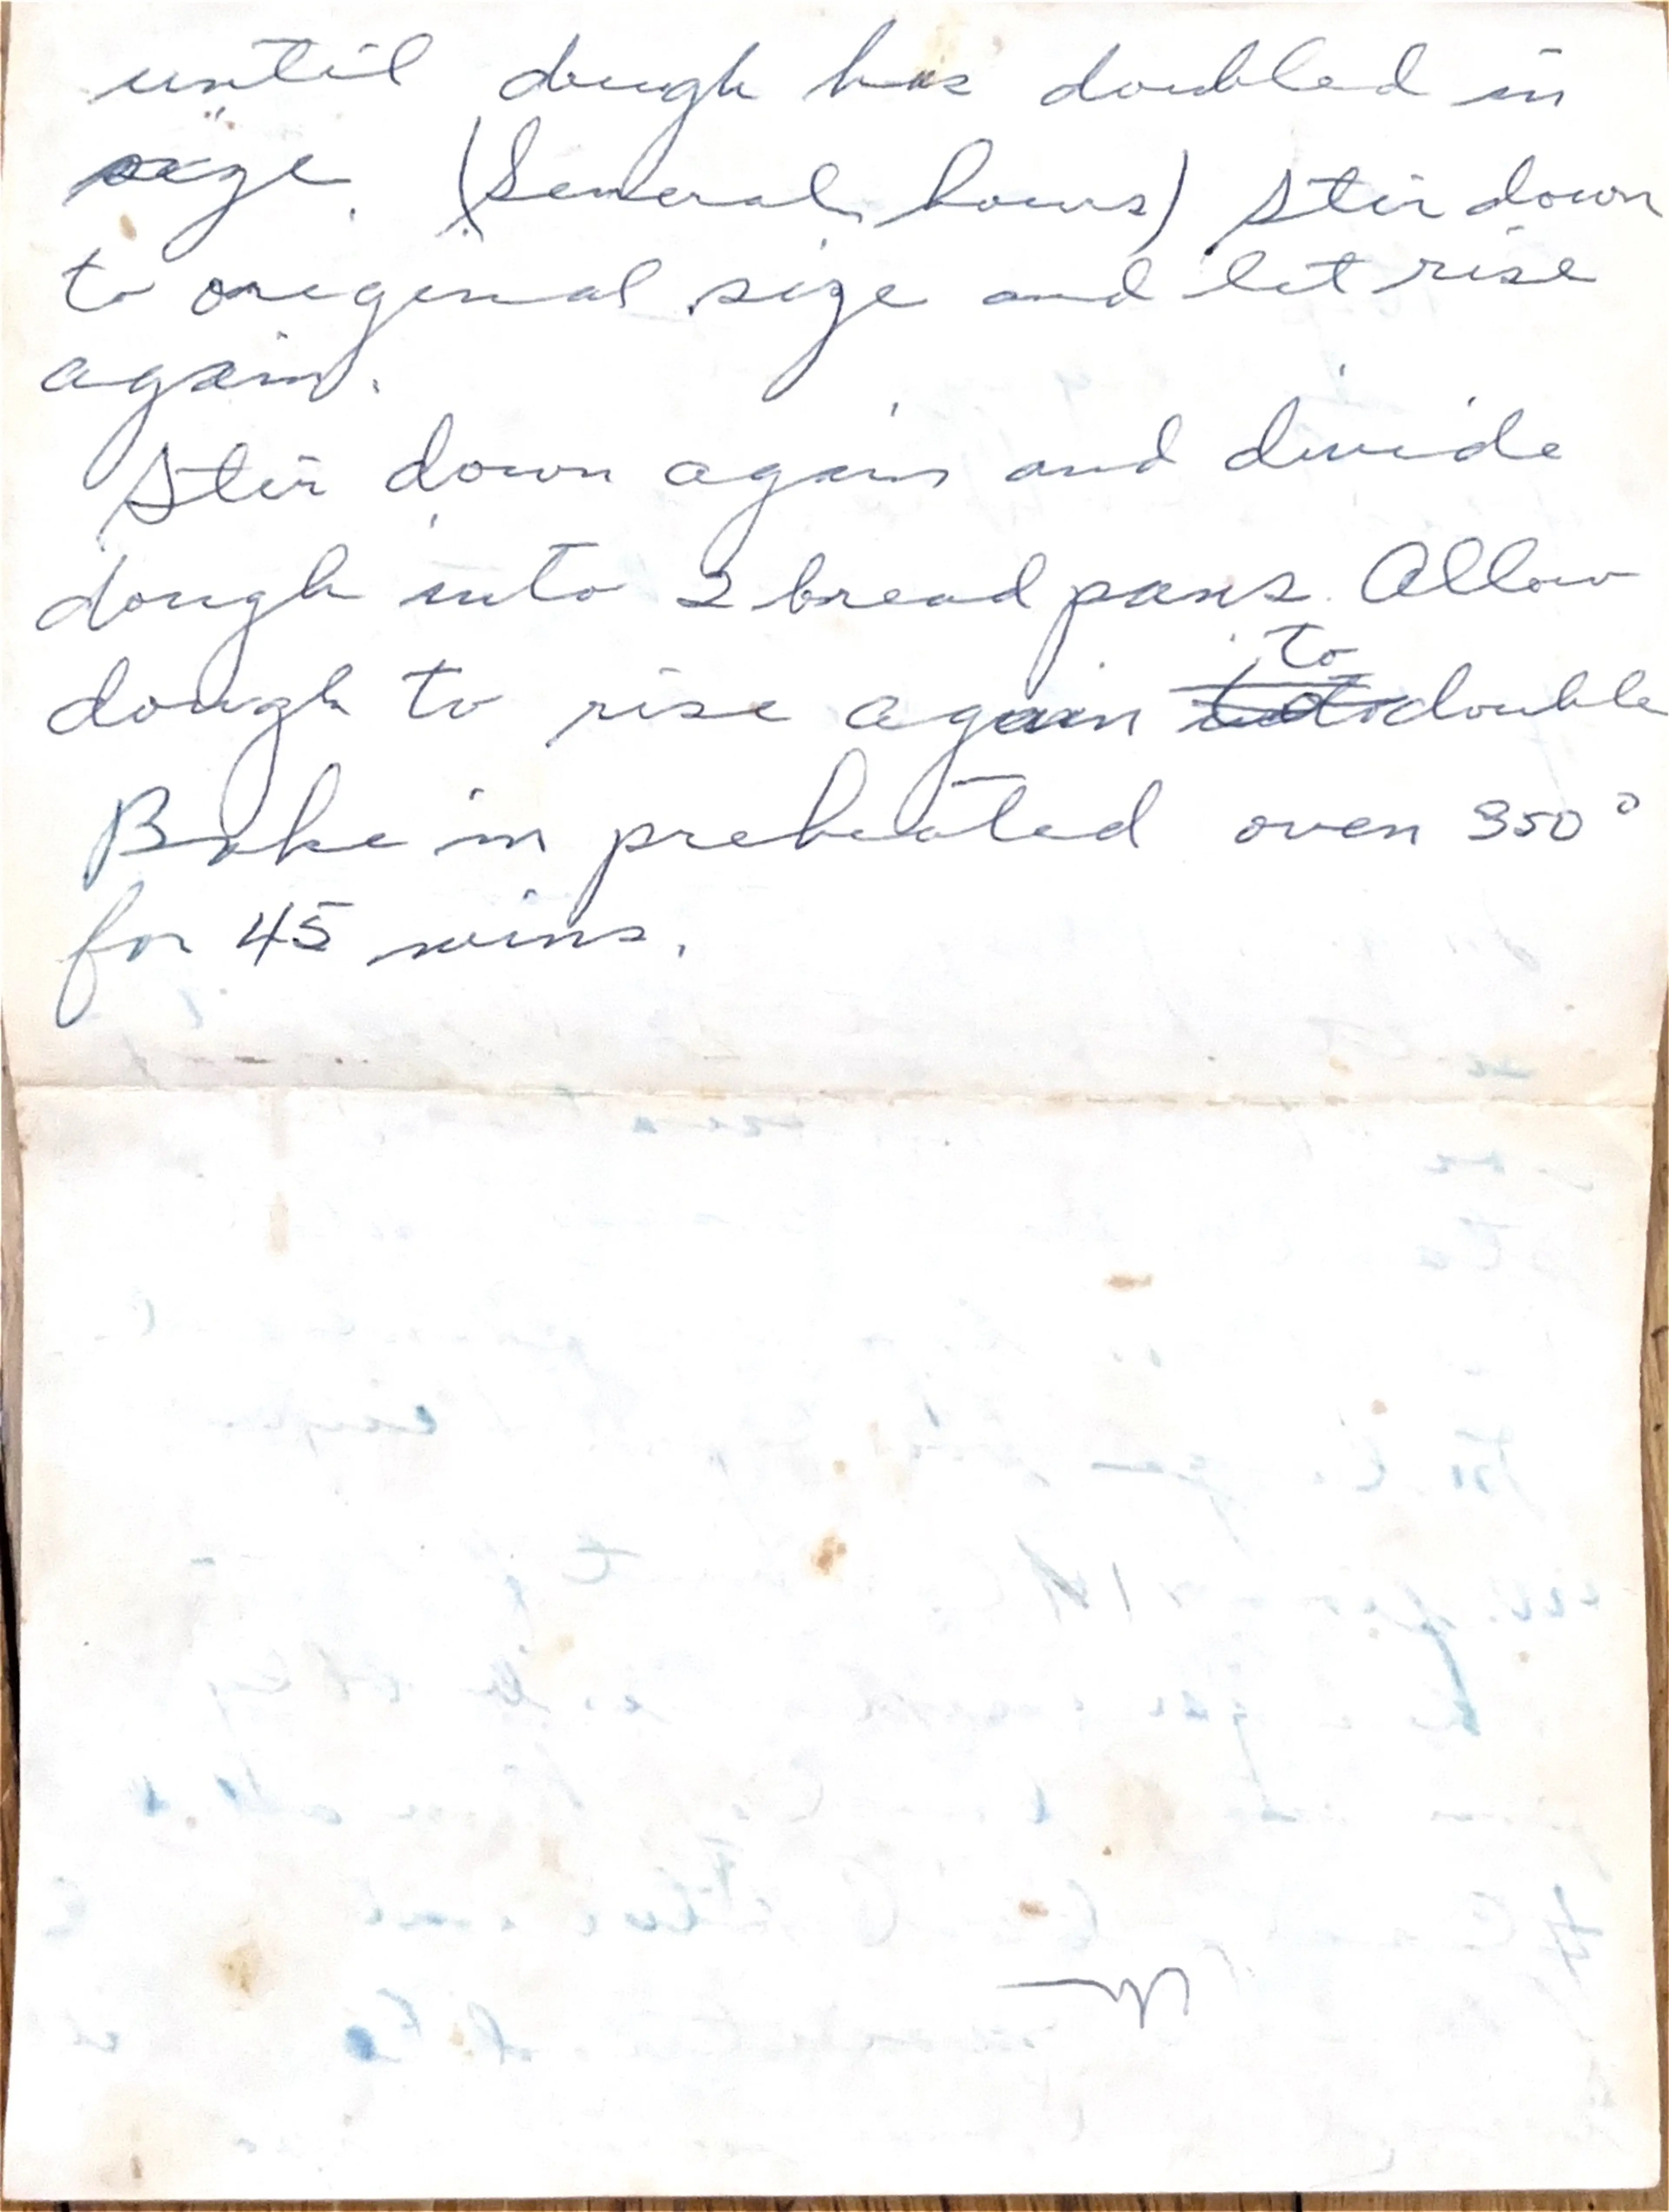 until dough has doubled in
size. (Several hours) Stir down
to original size and let rise
again.
Stir down again and divide
dough into 2 bread pans. Allow
dough to rise again to double
Bake in preheated oven 350°
for 45 mins.